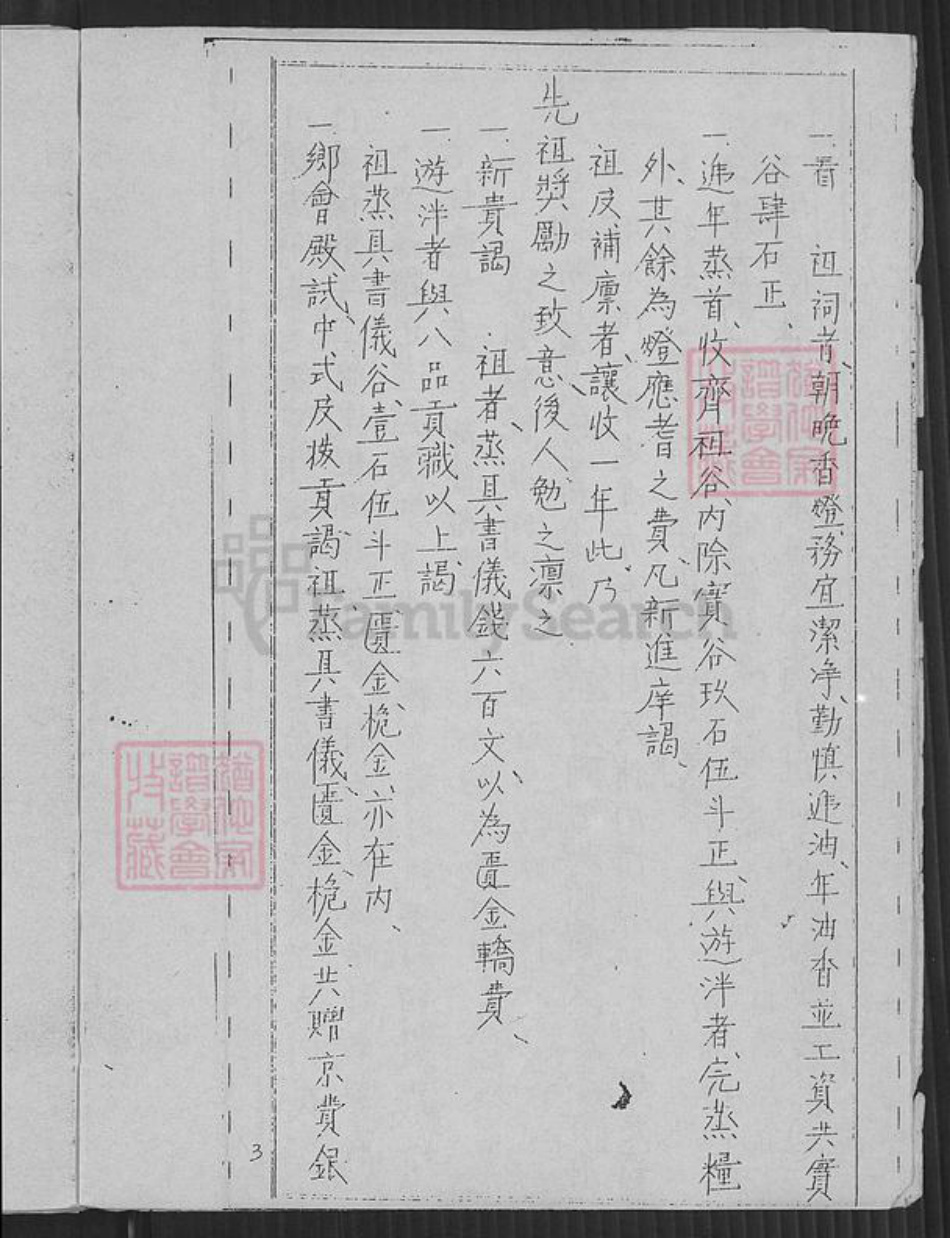 一看　祖祠者、朝晚香燈、務宜潔净、勤慎遞油、年油香並工資共實
谷肆石正、
一遞年蒸首、收齊祖谷、内除實谷玖石伍斗正、與遊泮者、完蒸糧
外、其餘為燈應耆之費、凡新進庠謁、
祖及補廩者、讓收一年、此乃
先祖獎勵之致意、後人勉之凛之
一新貴謁　祖者、蒸具書儀錢六百文、以為匾金轎費、
一遊泮者與八品貢職以上謁、
祖蒸具書儀谷、壹石伍斗正、匾金桅金、亦在内、
一鄉會殿試、中式及拔貢、謁祖蒸具書儀、匾金桅金共贈京費銀
3
譜學會
收藏
譜學會
收藏
FamilySearch